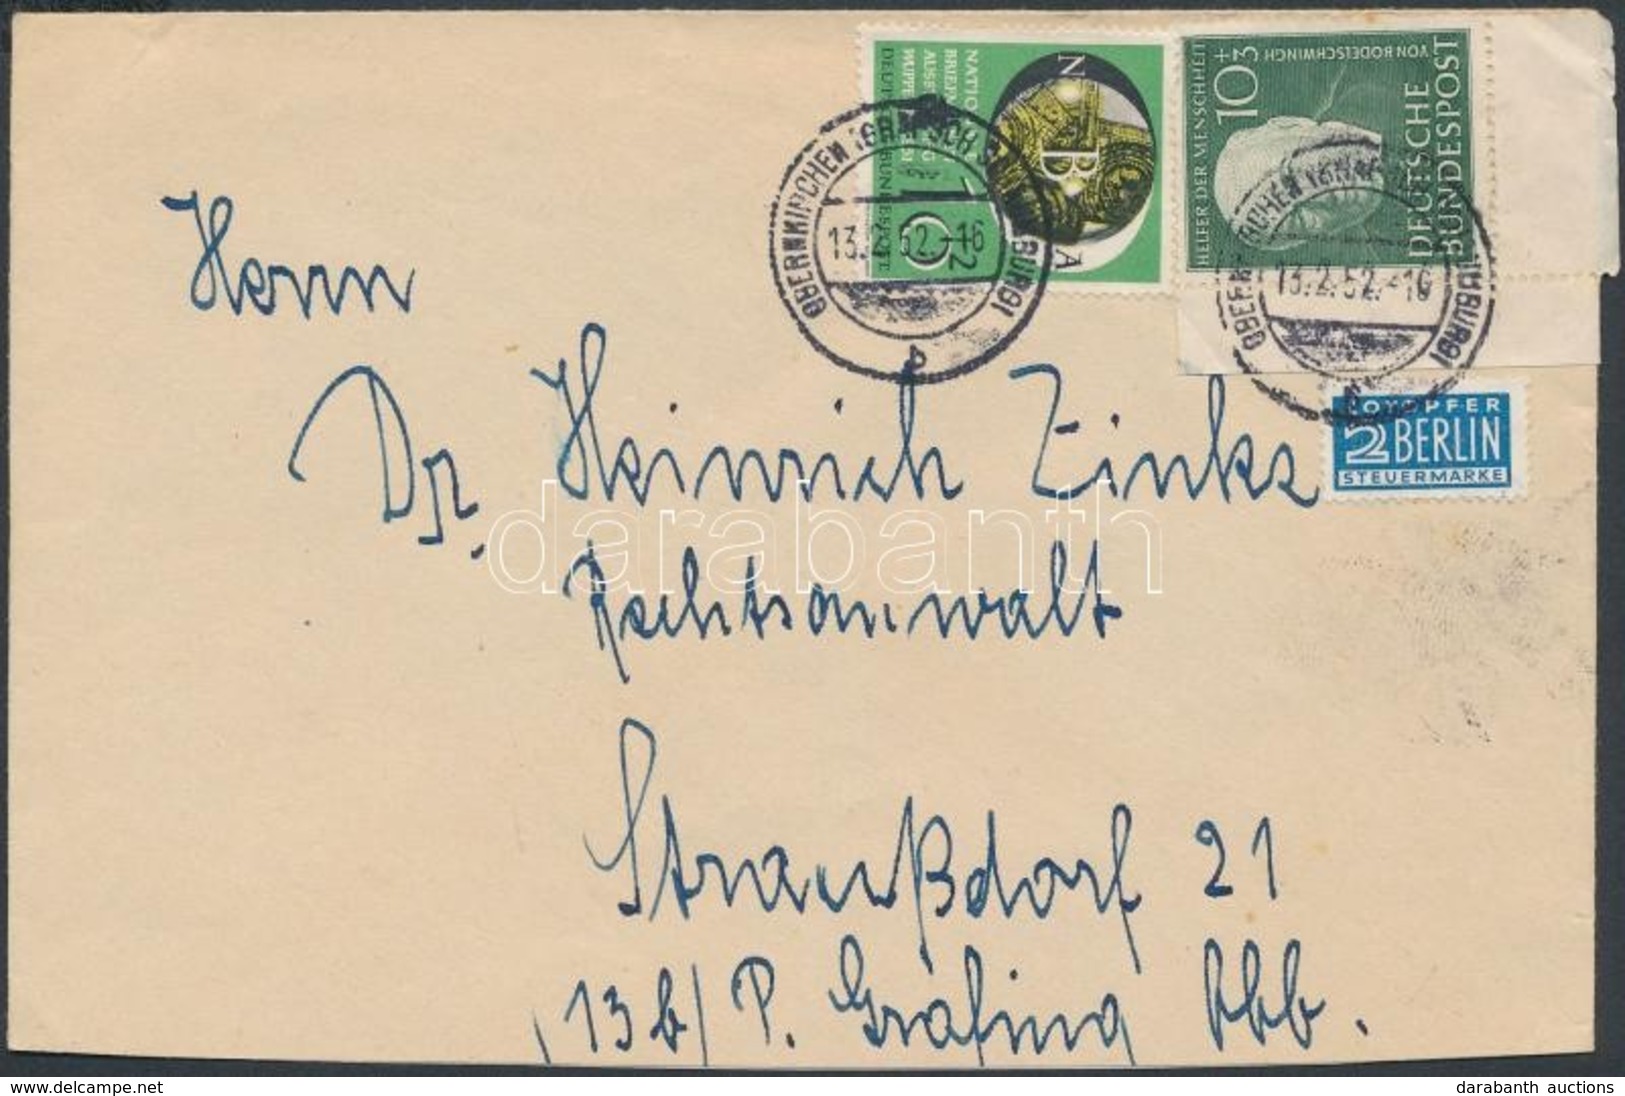 NATIO
BRIEF
AUSS
WUPPE
DEUTSCHE BUNDESPOST
NBA
10+2
10+3
VON BODELSCHWINGH
HELFER DER MENSCHHEIT
DEUTSCHE
BUNDESPOST
OBERNKIRCHEN (GRAFSCH. SCHAUMBURG)
13.2.52.-16
b
13.2.52.-16
NOTOPFER
2 BERLIN
STEUERMARKE
Herrn
Dr. Heinrich Zinke
Rechtsanwalt
Straußdorf 21
(13b) P. Grafing Obb.
darabanth
www.delcampe.net
darabanth auctions